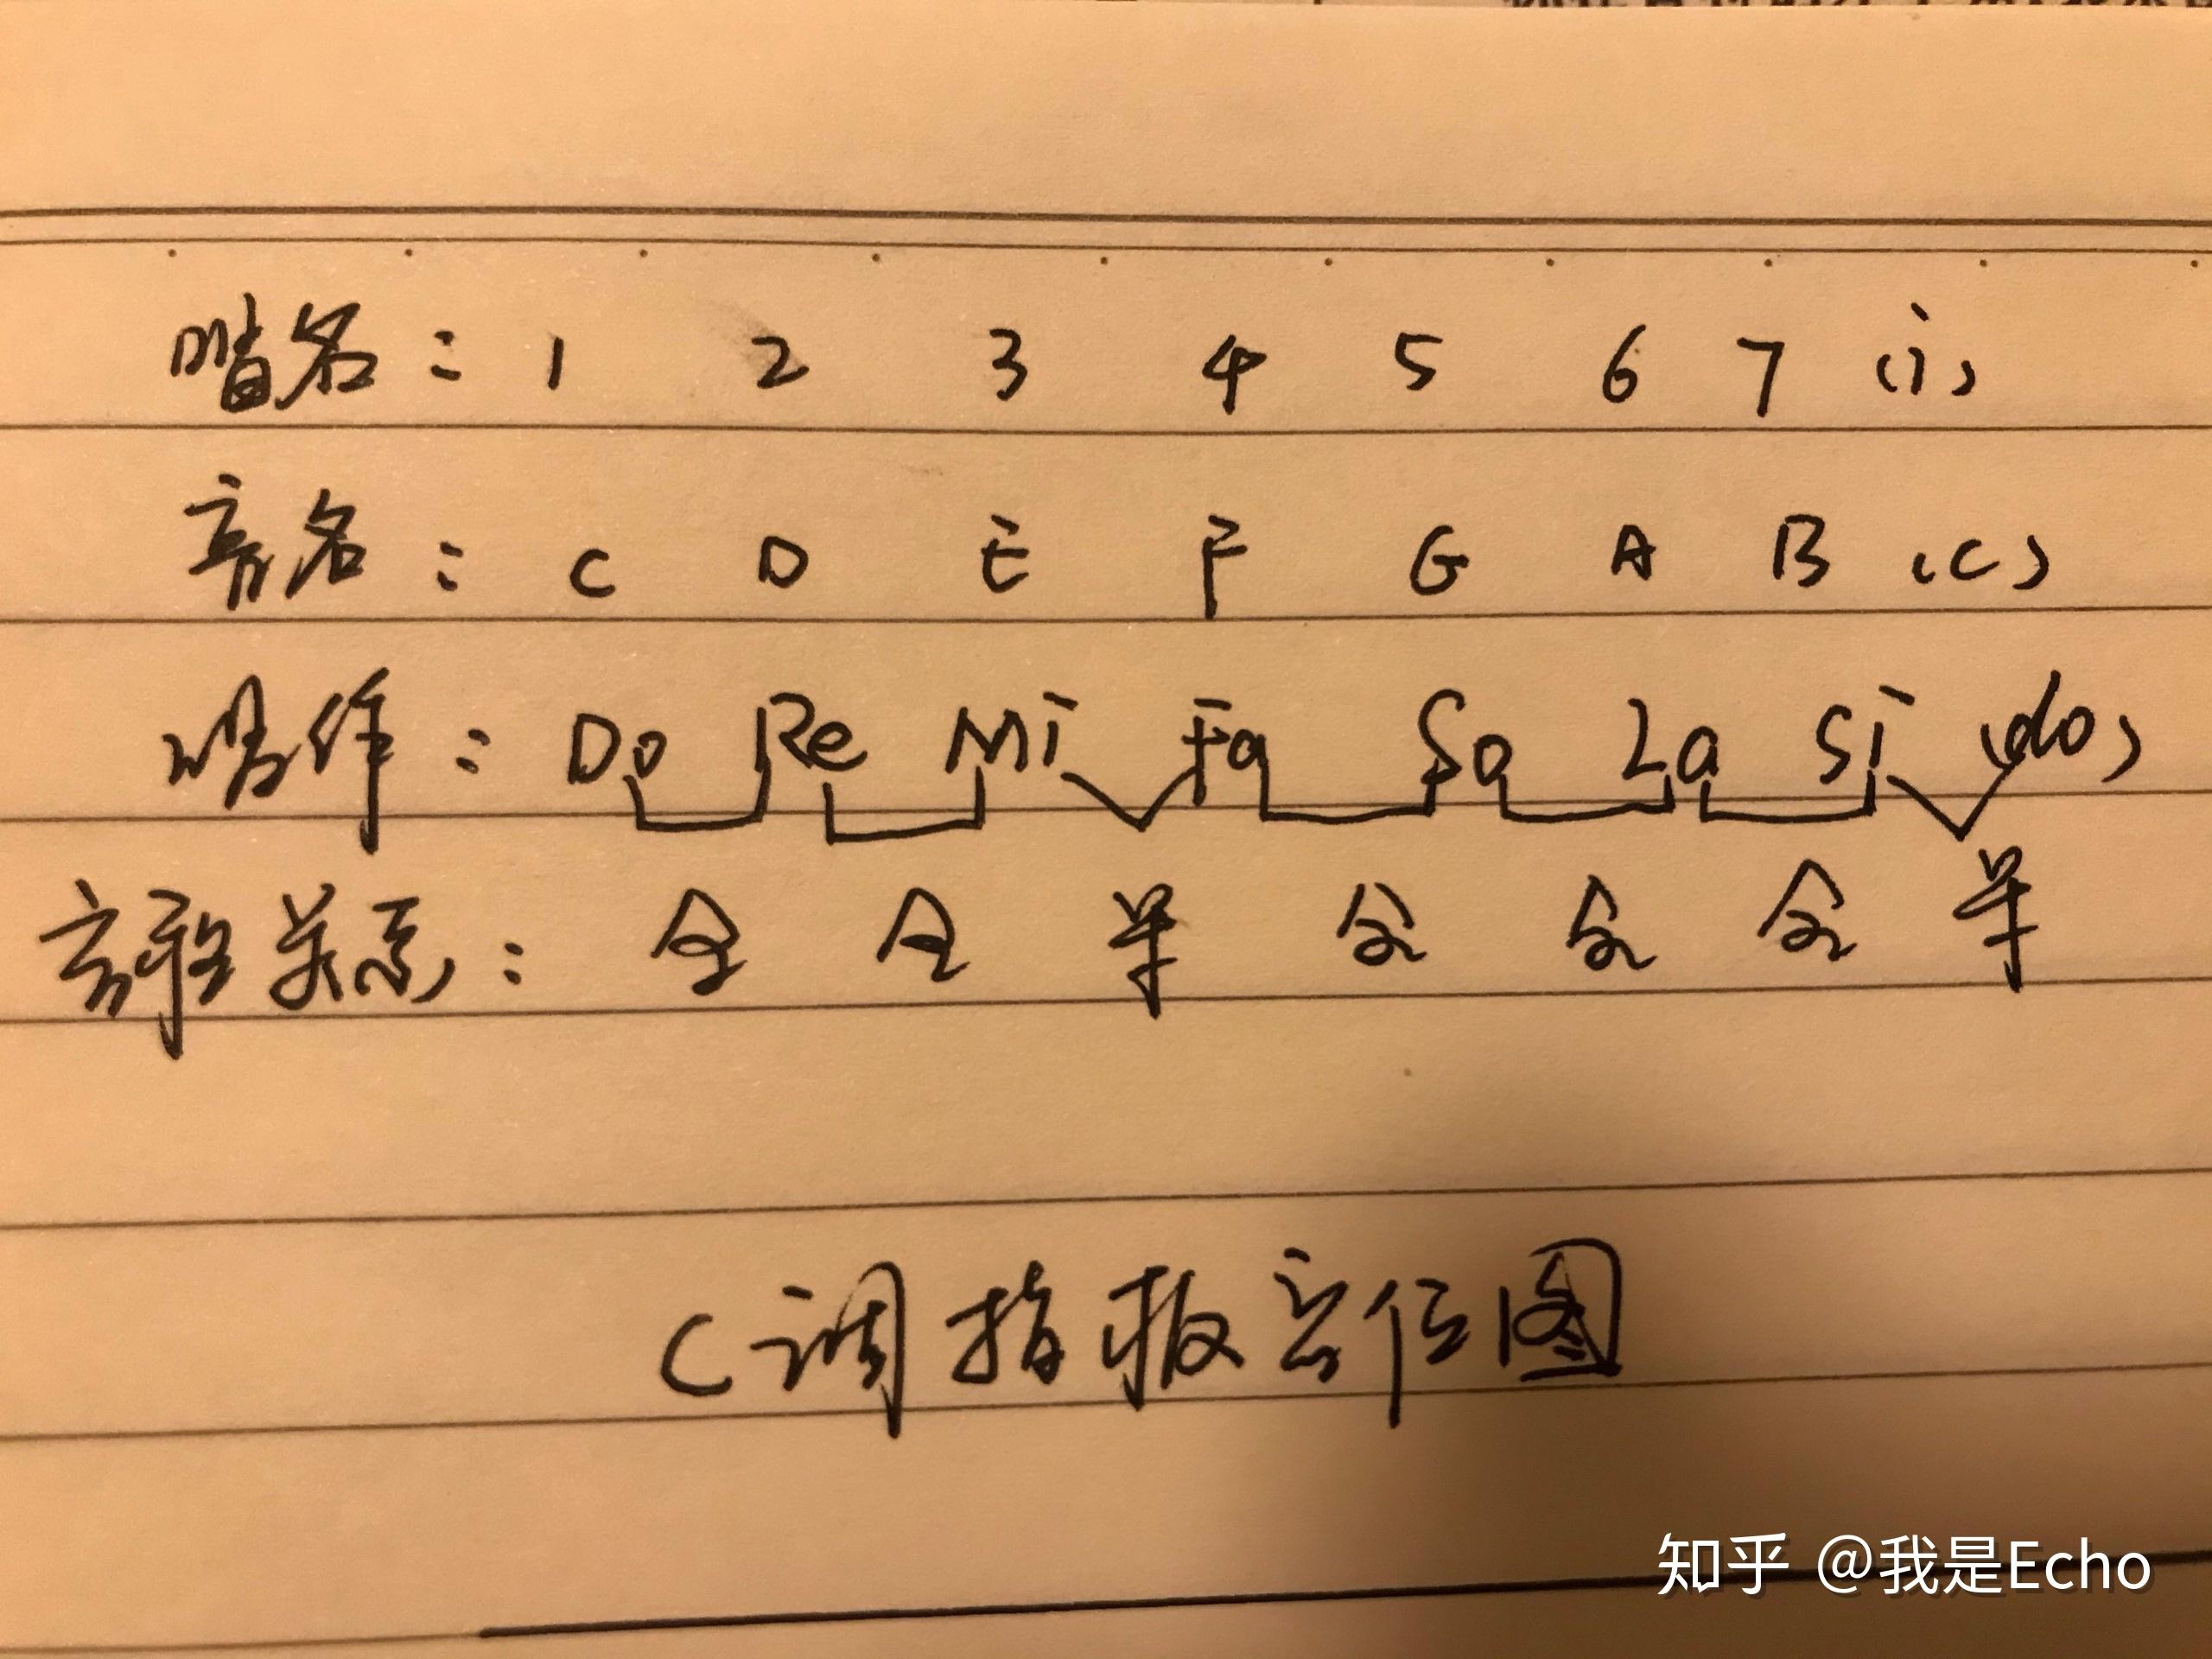 唱名：1 2 3 4 5 6 7 (i)
音名：C D E F G A B (C)
唱作：Do Re Mi Fa So La Si (do)
音程关系：全 全 半 全 全 全 半
C调指板音位图
知乎 @我是Echo